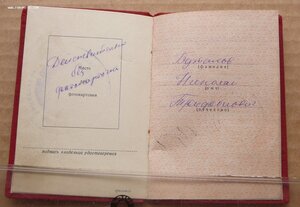 Действительно
Место
без
фотокарточки
фотокарточки
подпись владельца удостоверения
(фамилия)
Николай
(имя)
Трифонович
(отчество)